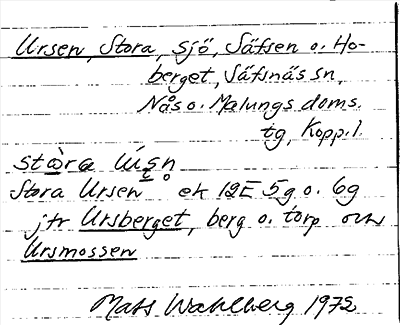 Ursen, Stora, sjö, Säfsen o. Ho-
berget, Säfsnäs sn,
Nås o. Malungs doms.
tg, Kopp. l.
stòra
Stora Ursen ek 12E 5g o. 6g
jfr Ursberget, berg o. torp och
Ursmossen
Mats Wahlberg 1972